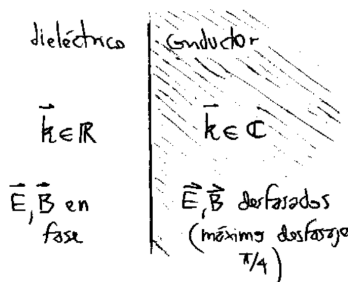 dieléctrico
k⃗ ∈ ℝ
E⃗, B⃗ en
fase
conductor
k⃗ ∈ ℂ
E⃗, B⃗ desfasados
(máximo desfasaje
π/4)